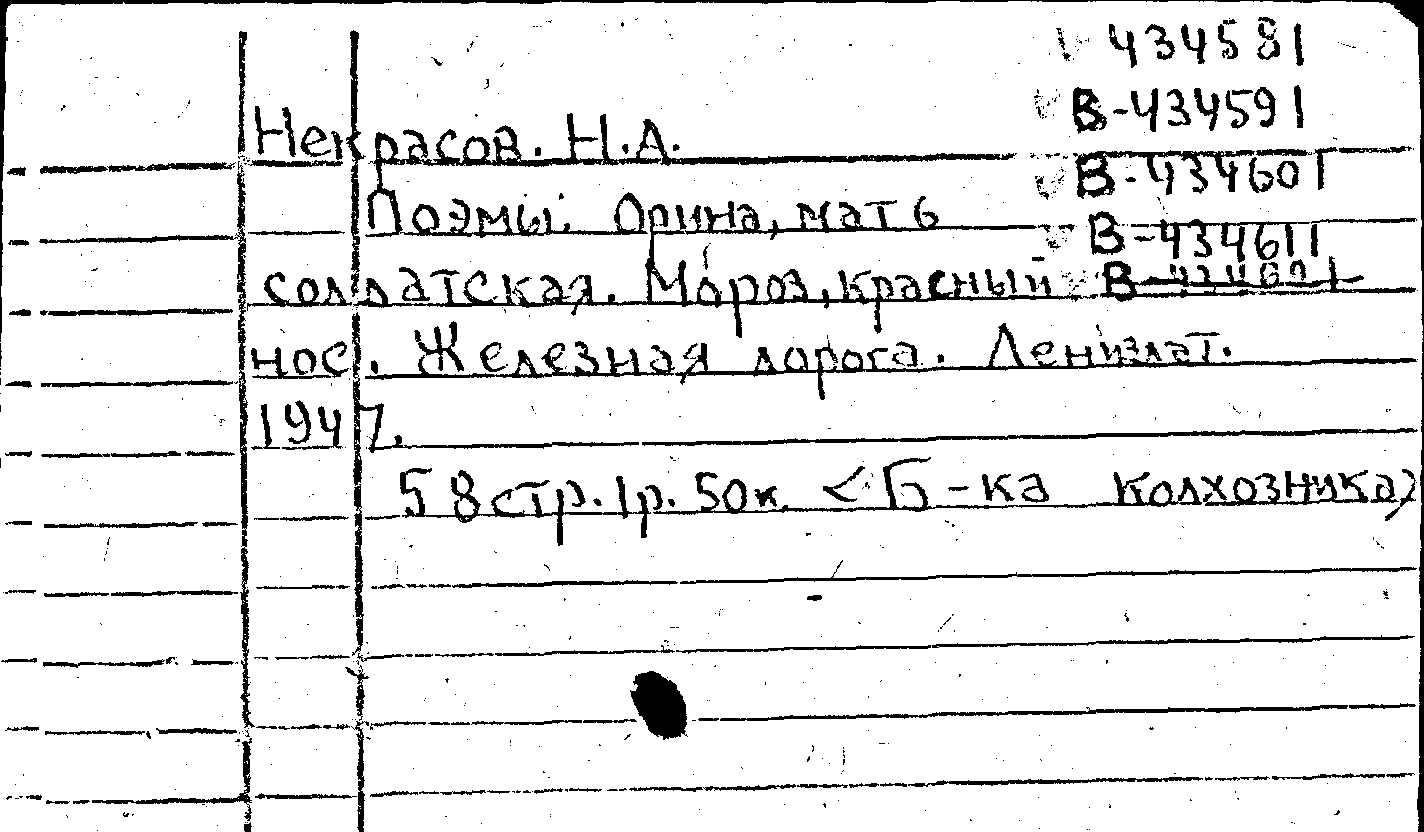 434581
В-434591
Некрасов. Н.А.
В-434601
Поэмы. Орина, мать
В-434611
солдатская. Мороз, красный
нос. Железная дорога. Лениздат.
1947.
58 стр. 1р. 50к. <Б-ка колхозника>